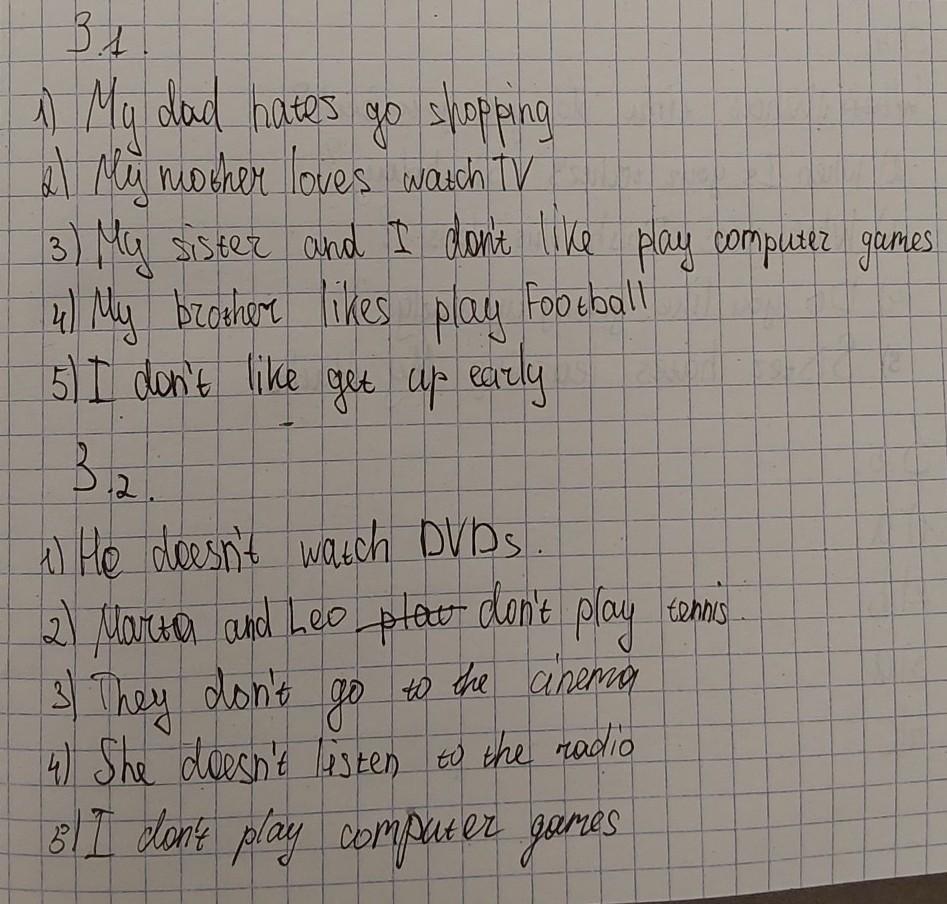 3.1.
1) My dad hates go shopping
2) My mother loves watch TV
3) My sister and I don't like play computer games
4) My brother likes play Football
5) I don't like get up early
3.2.
1) He doesn't watch DVDs.
2) Marta and Leo play don't play tennis.
3) They don't go to the cinema
4) She doesn't listen to the radio
5) I don't play computer games